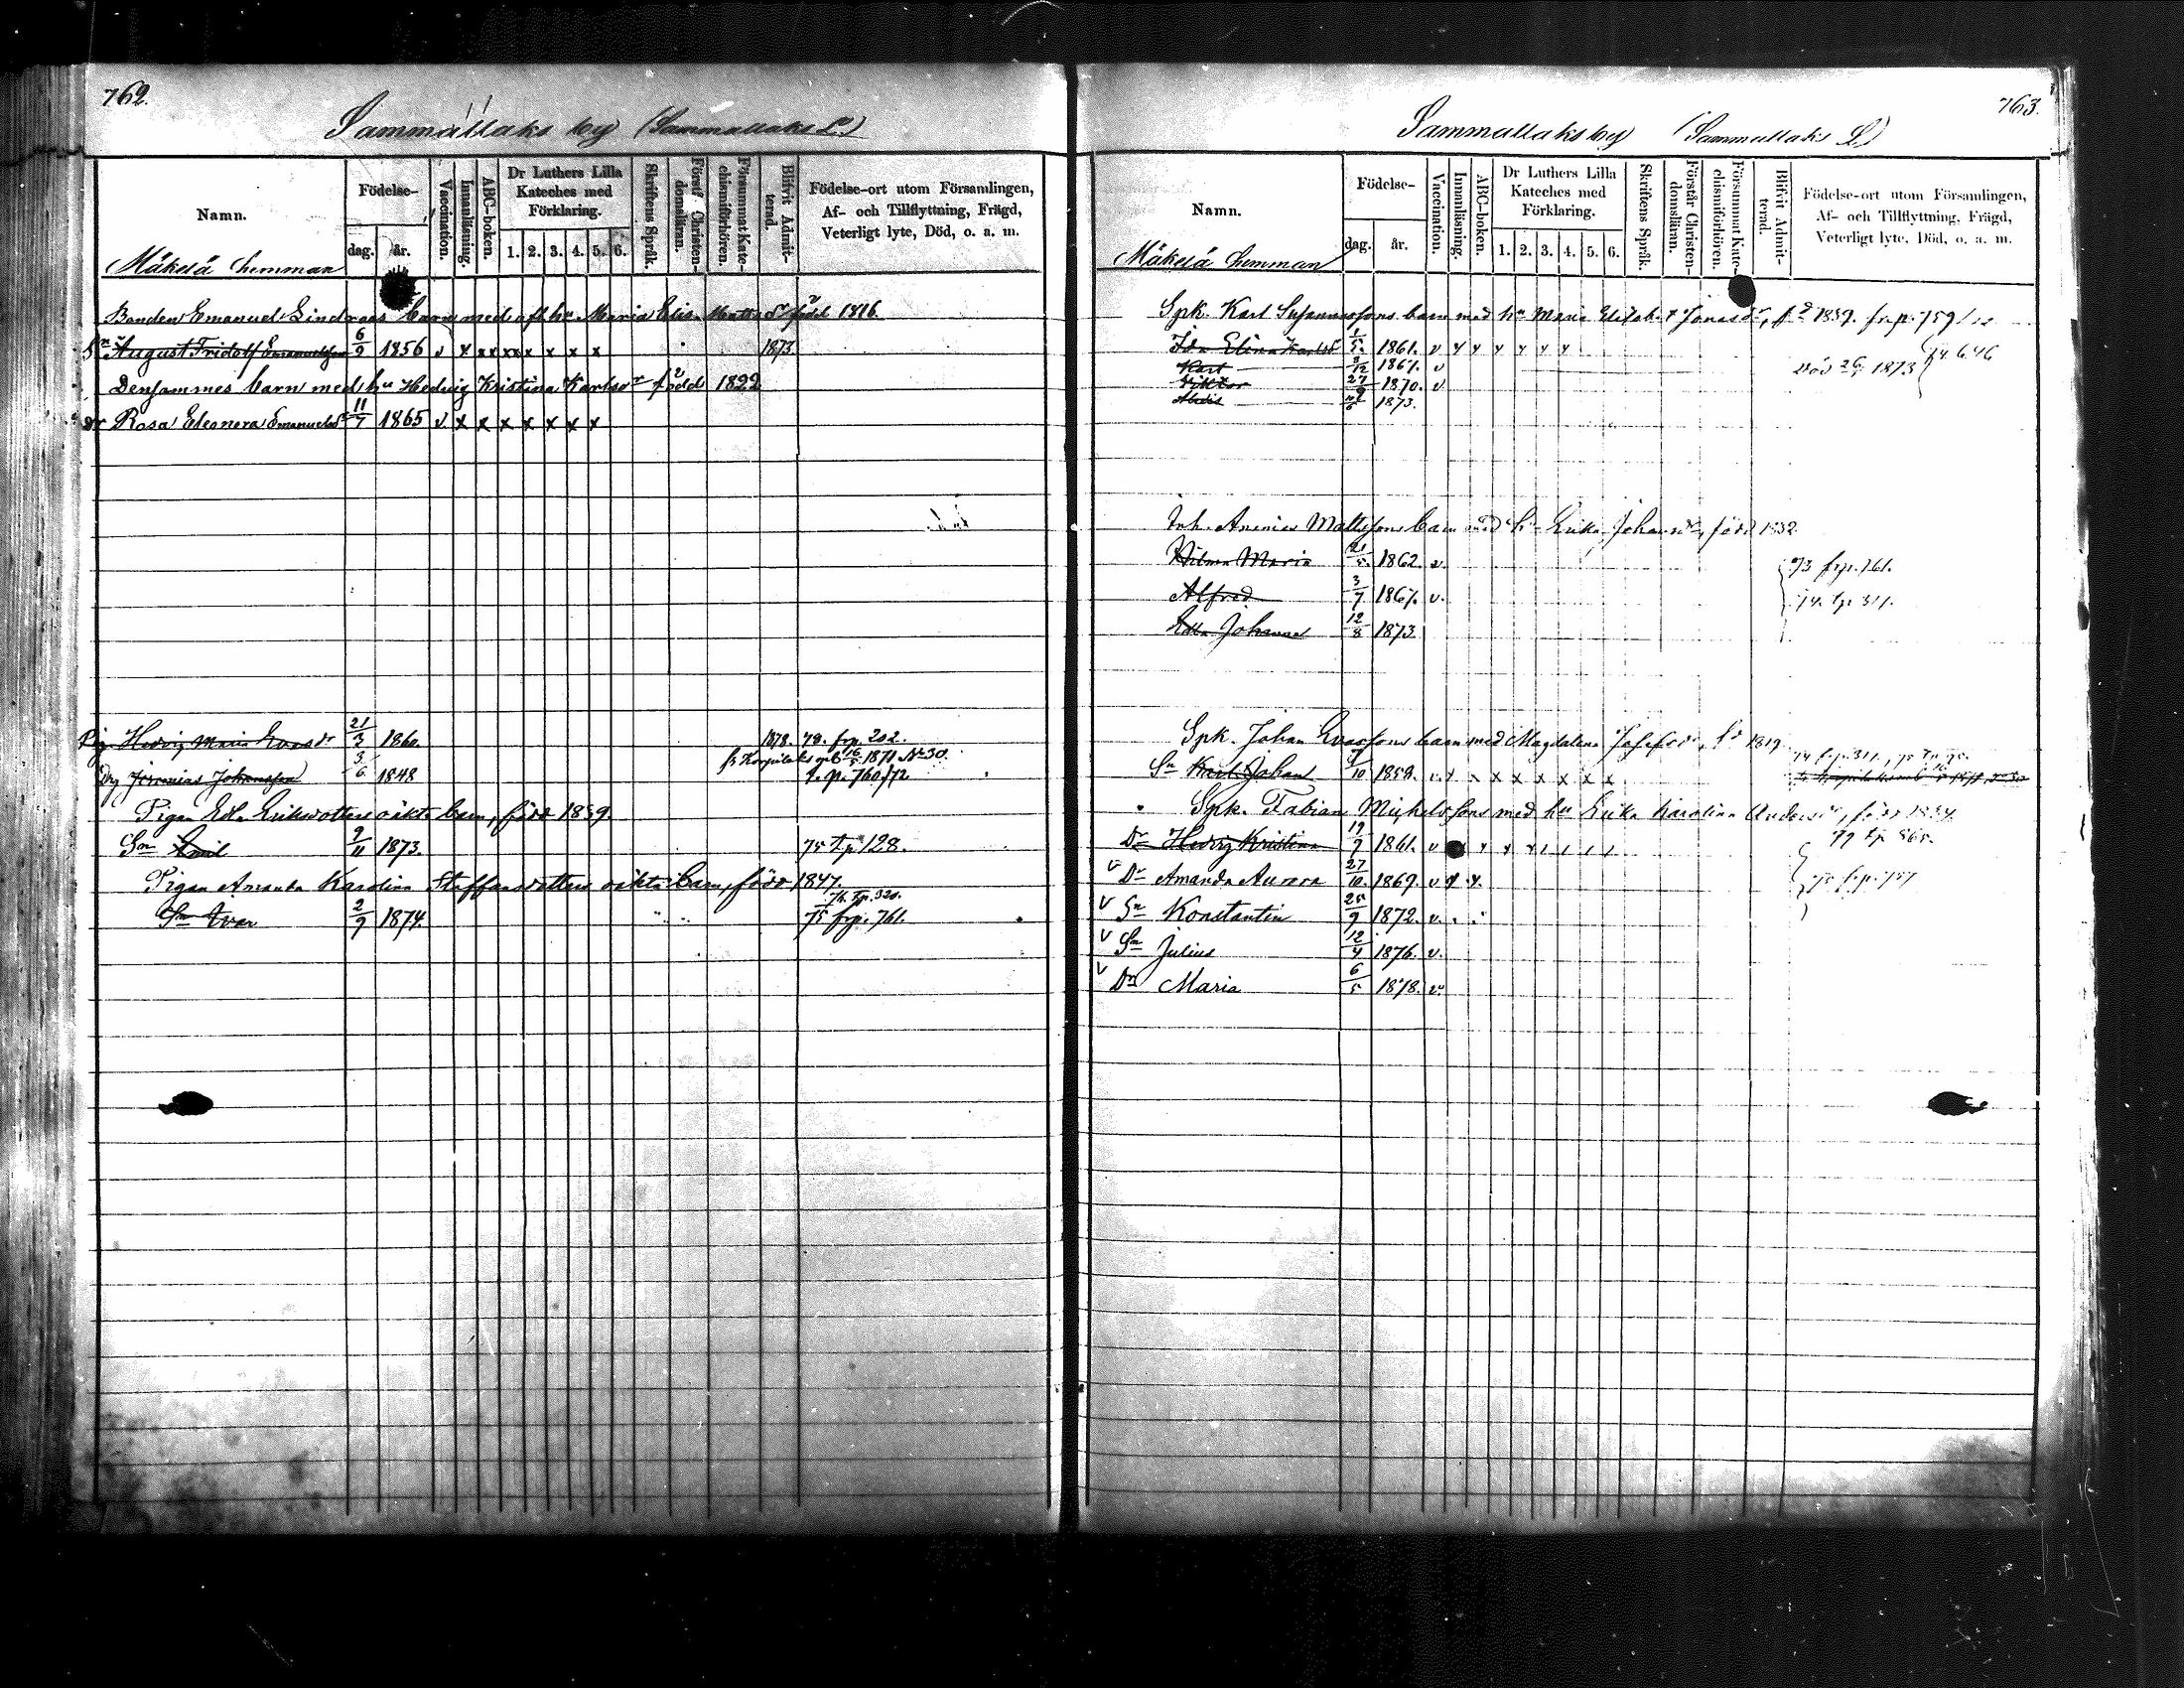 762.
Sammallaks by (Sammallaks L.)
Namn.
Mäkelä hemman
Födelse-
dag. år.
Vaccination.
Innanläsning.
ABC-boken.
Dr Luthers Lilla Kateches med Förklaring.
1. 2. 3. 4. 5. 6.
Skriftens Språk.
Förstå Christen-domsläran.
Försummat Kate-chismiförhören.
Blifvit Admit-terad.
Födelse-ort utom Församlingen, Af- och Tillflyttning, Frägd, Veterligt lyte, Död, o. a. m.
Bonden Emanuel Lindroos barn med afl. hu Maria Elis. Mattsdr född 1816
Sn August Fridolf Emanuelsson 6/9 1856 v x xx xx x x x x 1873
Densammes barn med hu Hedvig Kristina Karlsdr född 1822
Dr Rosa Eleonora Emanuelsdr 11/7 1865 v x x x x x x x
Pig. Hedvig Maria Evasdr 21/3 1860. 1878. 78. frp. 202.
Dg Jeremias Johansson 3/6 1848 fr Korpilaks 1871 No 30.
t. p. 760/72
Pigan Eda Eriksdotters oäkta barn, född 1859.
Sn Emil 2/11 1873. 75 tp. 128.
Pigan Amanda Karolina Staffansdotters oäkta barn, född 1847.
76. tp. 320.
Sn Ivar 2/9 1874. 75 frp. 761.
763.
Sammallaks by (Sammallaks L.)
Namn.
Mäkelä hemman
Födelse-
dag. år.
Vaccination.
Innanläsning.
ABC-boken.
Dr Luthers Lilla Kateches med Förklaring.
1. 2. 3. 4. 5. 6.
Skriftens Språk.
Förstår Christen-domsläran.
Försummat Kate-chismiförhören.
Blifvit Admit-terad.
Födelse-ort utom Församlingen, Af- och Tillflyttning, Frägd, Veterligt lyte, Död, o. a. m.
Spk. Karl barn med hu Maria Elisabet Jonasdr, fd 1839. fr.p. 759
Ida Elina Karlsdr 1/5. 1861. v x x x x x x
Karl 2/12 1867. v död 26 1873 74 646
Viktor 27 1870. v.
1873.
Inh. Ananias Mattssons barn med hu Erika Johansdr, född 1832
Hilma Maria 21/5. 1862. v. 73 frp. 761.
Alfred 3/7 1867. v. 74. tp. 311.
Edla Johanna 12/8 1873.
Spk. Johan Evassons barn med Magdalena Josefsdr, fd 1819
Sn Karl Johan 10 1858. v. x x x x x x x x
Spk. Fabian Michelssons med hu Erika Karolina Andersdr, född 1834.
Dr Hedvig Kristina 19/7 1861. v 79 tp 865.
Dr Amanda Aurora 27/10. 1869. v x x. 75 frp. 757
Sn Konstantin 25/9 1872. v.
Sn Julius 12/4 1876. v.
Dr Maria 6/5 1878. v.